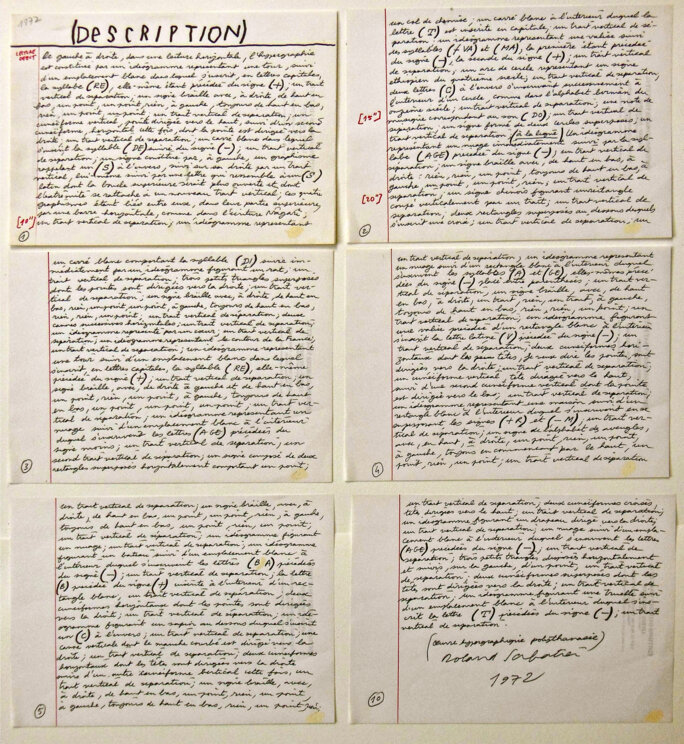 1972
(DESCRIPTION)
LECTURE
DROIT
De gauche à droite, dans une lecture horizontale, l'hypergraphie
est constituée par un idéogramme représentant une tour, suivi
d'un emplacement blanc dans lequel s'inscrit, en lettres capitales,
la syllabe (RE), elle-même étant précédée du signe (+); un trait
vertical de séparation; un signe braille avec, à droite, de haut en
bas, un point, un point, rien, à gauche, toujours de haut en bas,
rien, un point, un point; un trait vertical de séparation; un
cunéiforme vertical, pointe dirigée vers le haut, suivi d'un second
cunéiforme, horizontal cette fois, dont la pointe est dirigée vers la
droite; un trait vertical de séparation; un carré blanc dans lequel
s'inscrit la syllabe (DE) suivie du signe (–); un trait vertical
de séparation; un signe constitué par, à gauche, un graphisme
rappelant un (S) à l'envers, suivi sur sa droite par un trait
vertical, lui-même suivi par une lettre qui ressemble à un (S)
latin dont la boucle supérieure serait plus ouverte et dont
l'extrémité se rattache à un nouveau trait vertical; ces quatre
graphismes étant liés entre eux, dans leur partie supérieure,
par une barre horizontale, comme dans l'écriture Nagari;
[10"] un trait vertical de séparation; un idéogramme représentant
1
un col de chemise; un carré blanc à l'intérieur duquel la
lettre (I) est inscrite en capitale; un trait vertical de sé-
paration; un idéogramme représentant une valise suivi
des syllabes (+ VA) et (MA), la première étant précédée
du signe (–), la seconde du signe (+); un trait vertical
de séparation; un arc de cercle représentant un signe
éthiopien du quatrième siècle; un trait vertical de séparation;
deux lettres (C) à l'envers s'inscrivant successivement à
l'intérieur d'un cercle, comme dans l'alphabet birman du
onzième siècle; un trait vertical de séparation; une note de
[15"] musique correspondant au son (DO); un trait vertical de
séparation; un signe formé de deux cercles superposés; un
trait vertical de séparation (à la ligne) Un idéogramme
représentant un nuage immédiatement suivi par la syl-
labe (AGE) précédée du signe (–); un trait vertical de
séparation; un signe braille avec, de haut en bas, à
droite: rien, rien, un point, toujours de haut en bas, à
gauche, un point, un point, rien; un trait vertical de
[20"] séparation; un signe chinois figurant un rectangle
coupé verticalement par un trait; un trait vertical de
séparation; deux rectangles superposés au dessous desquels
s'inscrit une croix; un trait vertical de séparation; un
2
un carré blanc comportant la syllabe (DI) suivie im-
médiatement par un idéogramme figurant un rat; un
trait vertical de séparation; trois petits triangles superposés
dont les pointes sont dirigées vers la droite; un trait ver-
tical de séparation; un signe braille avec, à droite, de haut en
bas, rien, un point, un point, à gauche, toujours de haut en bas,
rien, rien, un point; un trait vertical de séparation; deux
carrés successives horizontales; un trait vertical de séparation;
un idéogramme représenté par un cœur; un trait vertical de
séparation; un idéogramme représentant le contour de la France;
un trait vertical de séparation; un idéogramme représentant
une tour suivi d'un emplacement blanc dans lequel
s'inscrit, en lettres capitales, la syllabe (RE), elle-même
précédée du signe (+); un trait vertical de séparation; un
signe braille, avec, de droite à gauche et de haut en bas,
un point, rien, un point, à gauche, toujours de haut
en bas, un point, un point, un point; un trait ver-
tical de séparation; un idéogramme représentant un
nuage suivi d'un emplacement blanc à l'intérieur
duquel s'inscrivent les lettres (AGE) précédées du
signe moins; un trait vertical de séparation; un
second trait vertical de séparation; un signe composé de deux
rectangles superposés horizontalement comportant un point;
3
un trait vertical de séparation; un idéogramme représentant
un nuage suivi d'un rectangle blanc à l'intérieur duquel
s'inscrivent les syllabes (A) et (GE), elles-mêmes précé-
dées du signe (–) placé entre parenthèses; un trait ver-
tical de séparation; un signe braille, avec, de haut en
bas, à droite, un trait, rien, un trait, à gauche,
toujours de haut en bas, rien, rien, un point; un
trait vertical de séparation; un idéogramme figurant
une valise précédée d'un rectangle blanc à l'intérieur
duquel s'inscrit la lettre latine (V) précédée du signe (–); un
trait vertical de séparation; deux cunéiformes hori-
zontaux dont les peux têtes, je veux dire les pointes, sont
dirigées vers la droite; un trait vertical de séparation;
un cunéiforme vertical, tête dirigée vers le haut,
suivi d'un second cunéiforme vertical dont la pointe
est dirigée vers le bas; un trait vertical de séparation;
un idéogramme représentant une maison suivi d'un
rectangle blanc à l'intérieur duquel s'inscrivent en se
superposant les signes (+ R) et (– M); un trait ver-
tical de séparation; un signe de l'alphabet des aveugles,
avec, en haut, à droite, un point, rien, un point,
à gauche, toujours en commençant par le haut, un
point, rien, un point; un trait vertical de séparation
4
un trait vertical de séparation; un signe braille, avec, à
droite, de haut en bas, un point, un point, rien, à gauche,
toujours de haut en bas, un point, rien, un point;
un trait vertical de séparation; un idéogramme figurant
un nuage; un trait vertical de séparation; un idéogramme
figurant un ballon suivi d'un emplacement blanc à
l'intérieur duquel s'inscrivent les lettres (B A) précédées
du signe (–); un trait vertical de séparation; la lettre
(B) précédée du signe (+) inscrite à l'intérieur d'un rec-
tangle blanc; un trait vertical de séparation; deux
cunéiformes horizontaux dont les pointes sont dirigées
vers la droite; un trait vertical de séparation; un idé-
ogramme figurant un sapin au dessous duquel s'inscrit
un (C) à l'envers; un trait vertical de séparation; une
canne vertical dont le manche courbé est dirigé vers la
droite; un trait vertical de séparation; deux cunéiformes
horizontaux dont les têtes sont dirigées vers la droite
suivis d'un autre cunéiforme vertical cette fois; un
trait vertical de séparation; un signe braille, avec,
à droite, de haut en bas, un point, rien, un point,
à gauche, toujours de haut en bas, un point, un point, rien;
5
un trait vertical de séparation; deux cunéiformes croisés,
têtes dirigées vers le haut; un trait vertical de séparation;
un idéogramme figurant un drapeau dirigé vers la droite;
un trait vertical de séparation; un nuage suivi d'un empla-
cement blanc à l'intérieur duquel s'inscrivent les lettres
(AGE) précédées du signe (–); un trait vertical de
séparation; trois petits triangles disposés horizontalement
et suivis, sur la gauche, d'un point; un trait vertical
de séparation; deux cunéiformes superposés dont les
têtes sont dirigées vers la droite; un trait vertical de
séparation; un idéogramme figurant une truelle suivi
d'un emplacement blanc à l'intérieur duquel s'ins-
crit la lettre (T) précédée du signe (–); un trait
vertical de séparation.
(œuvre hypergraphique polythanasée)
Roland Sabatier
1972
10